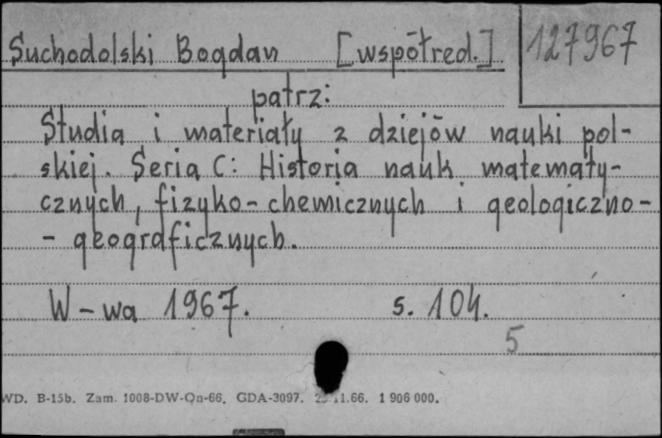 Suchodolski Bogdan [współred.] 127967
patrz:
Studia i materiały z dziejów nauki pol-
skiej. Seria C: Historia nauk matematy-
cznych, fizyko-chemicznych i geologiczno-
- geograficznych.
W-wa 1967. s. 104.
5
WD. B-15b. Zam. 1008-DW-Qn-66. GDA-3097. 11.66. 1 906 000.